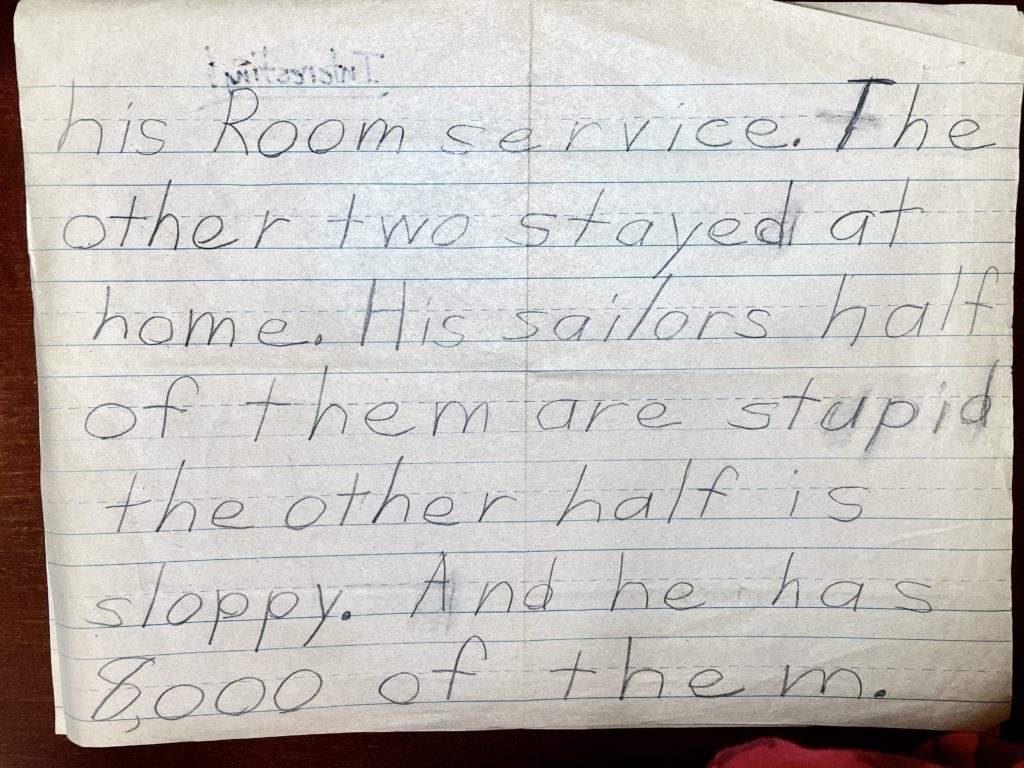 Interesting!
his Room service. The
other two stayed at
home. His sailors half
of them are stupid
the other half is
sloppy. And he has
8,000 of them.